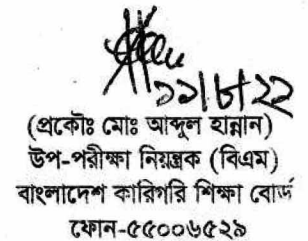 ১১/৮/২২
(প্রকৌঃ মোঃ আব্দুল হান্নান)
উপ-পরীক্ষা নিয়ন্ত্রক (বিএম)
বাংলাদেশ কারিগরি শিক্ষা বোর্ড
ফোন-৫৫০০৬৫২৯